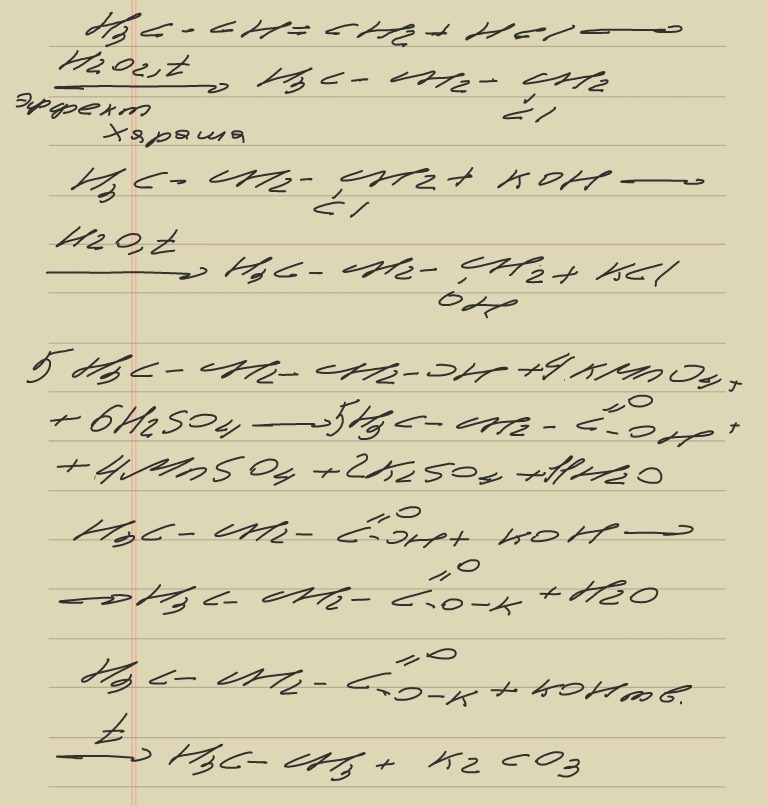 H3C - CH = CH2 + HCl ⟶
H2O2, t
⟶ H3C - CH2 - CH2
Эффект Cl
Хараша
H3C - CH2 - CH2 + KOH ⟶
Cl
H2O, t
⟶ H3C - CH2 - CH2 + KCl
OH
5 H3C - CH2 - CH2 - OH + 4KMnO4 +
+ 6H2SO4 ⟶ 5H3C - CH2 - C =O -OH +
+ 4MnSO4 + 2K2SO4 + 11H2O
H3C - CH2 - C =O -OH + KOH ⟶
⟶ H3C - CH2 - C =O -O-K + H2O
H3C - CH2 - C =O -O-K + KOH тв.
t
⟶ H3C - CH3 + K2CO3